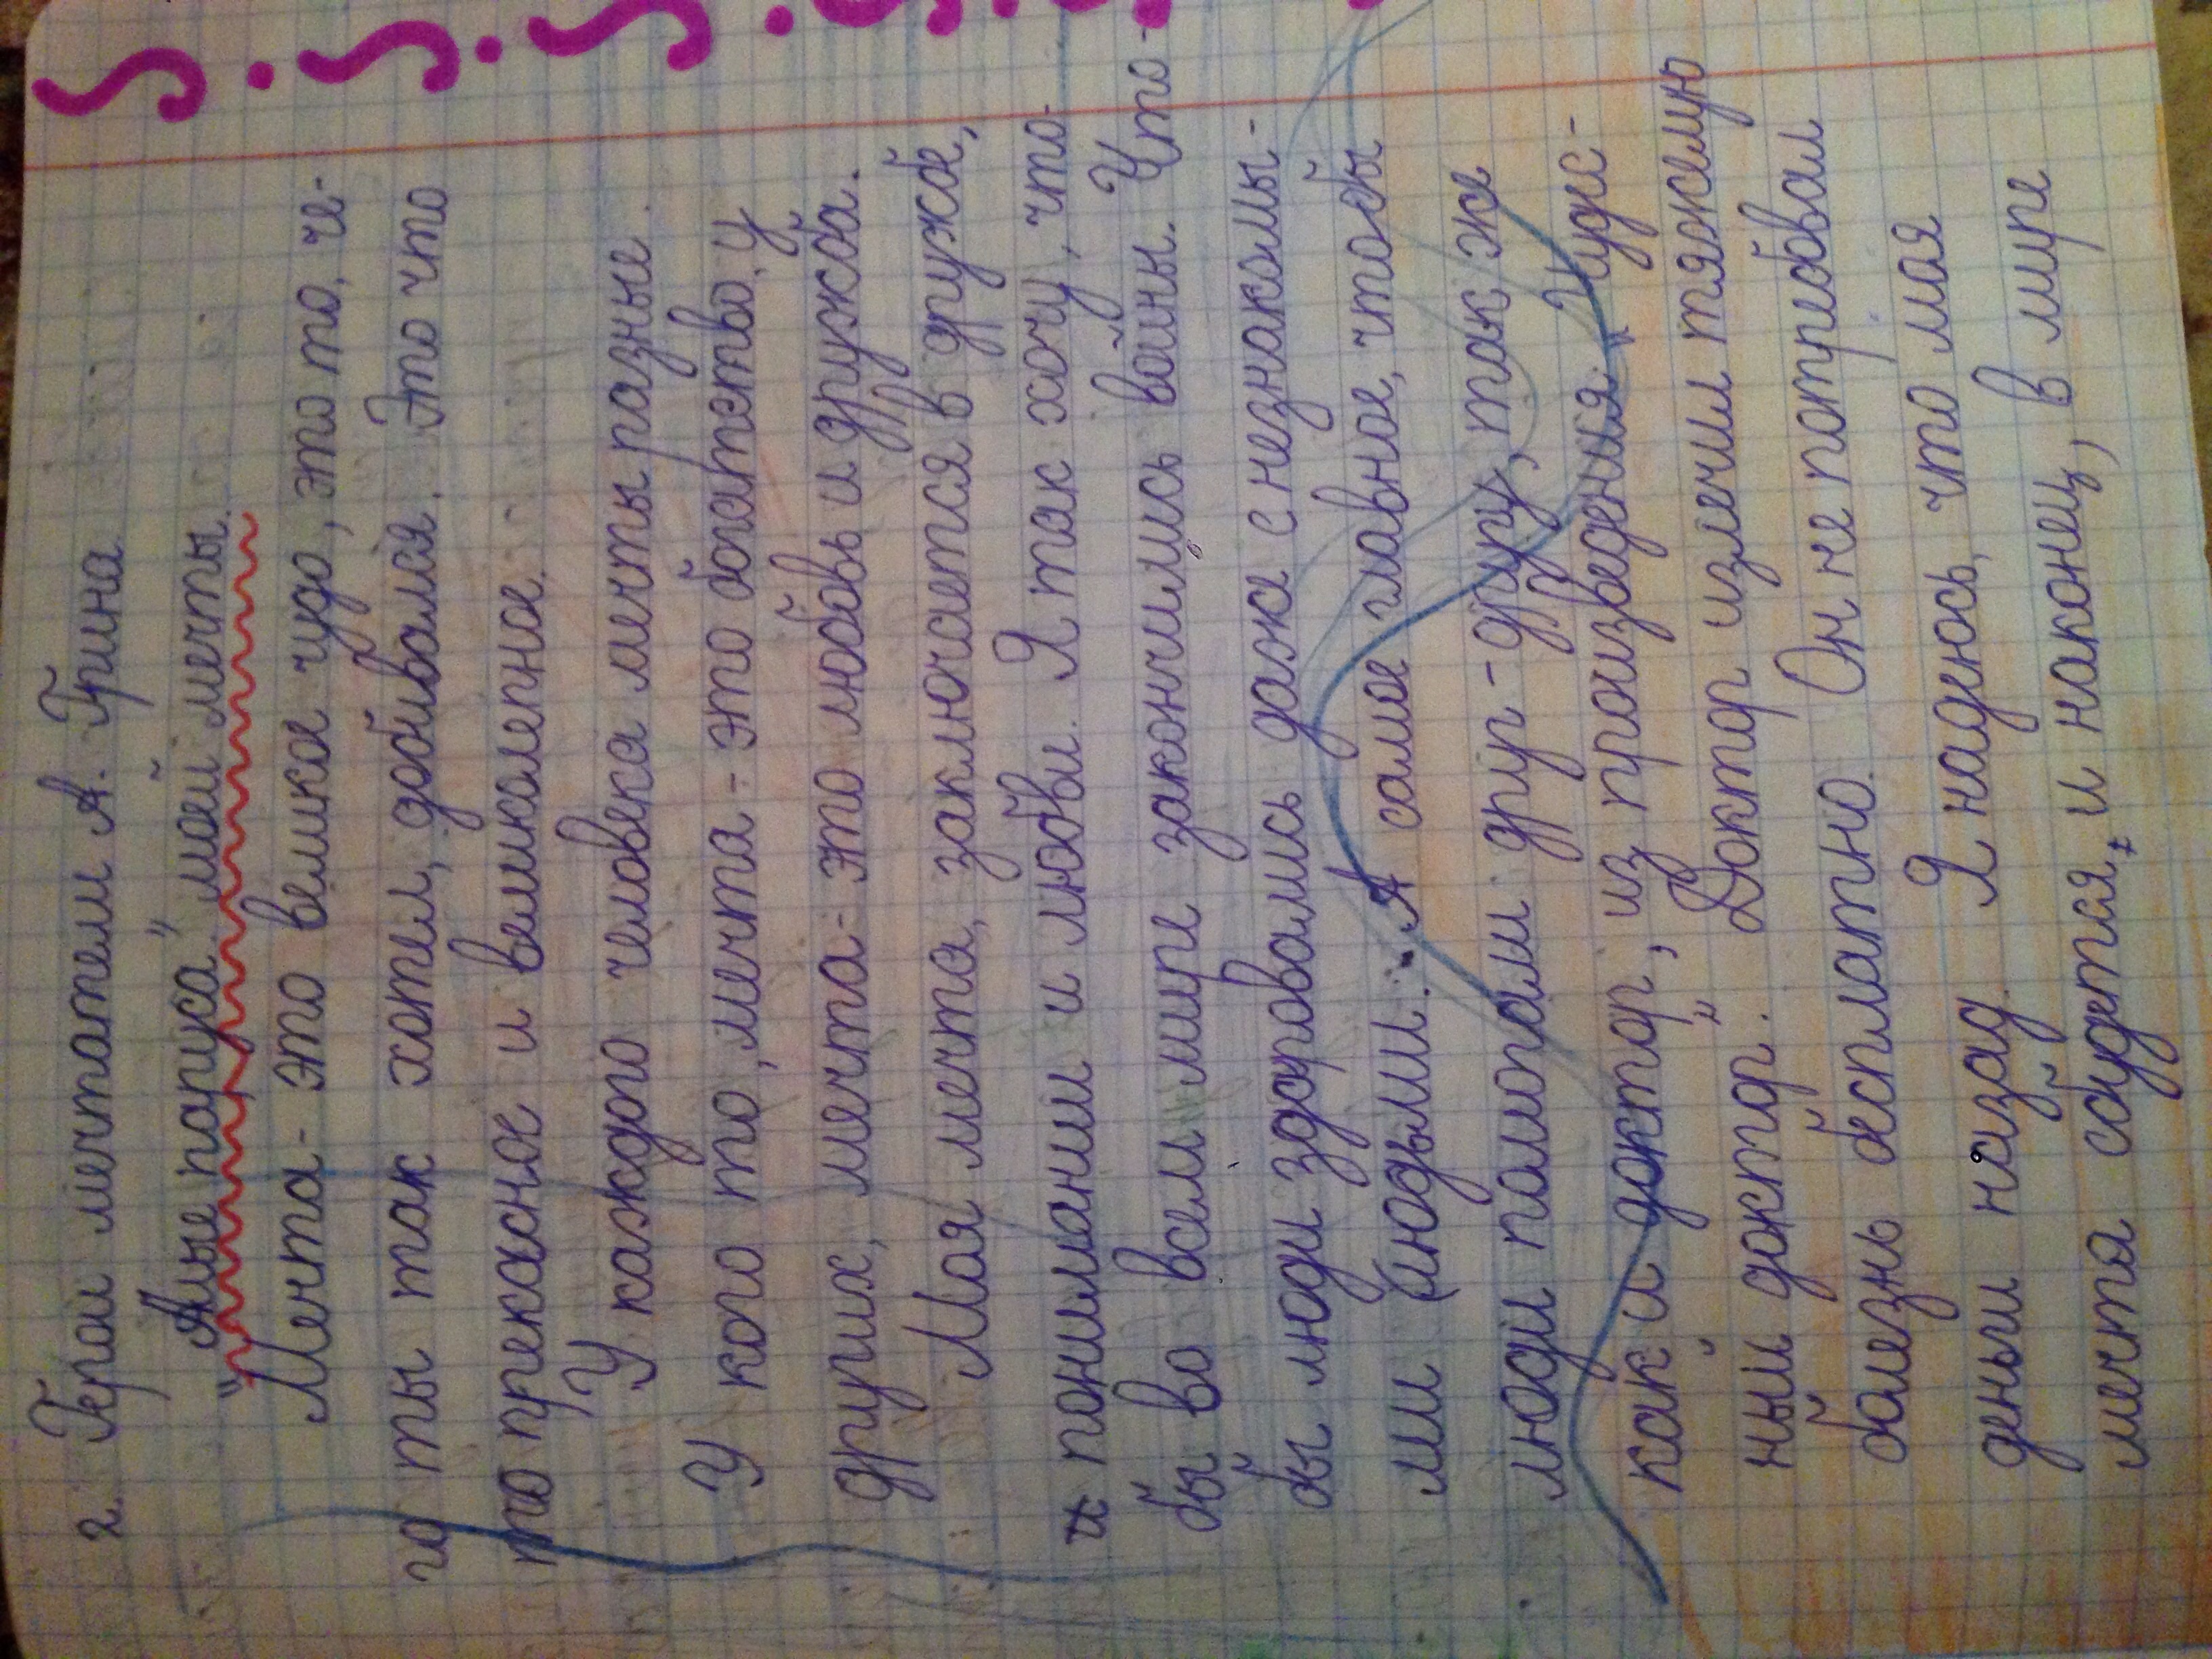 2. Герои мечтатели А. Грина
"Алые паруса" моей мечты.
Мечта - это великое чудо, это то, че-
го ты так хотел, добивался. Это что
то прекасное и великолепное.
У каждого человека мечты разные.
У кого то, мечта - это богатство, у
других, мечта - это любовь и дружба.
Моя мечта, заключается в дружбе,
и понимании и любви. Я так хочу, что-
бы во всем мире закончились войны. Что-
бы люди здоровались даже с незнакомы-
ми (людьми. А самое главное, чтобы
люди помогали друг-другу, так же
как и доктор, из произведения "Чудес-
ный доктор". Доктор излечил тяжелую
болезнь бесплатно. Он не потребовал
деньги назад. Я надеюсь, что моя
мечта сбудется, и наконец, в мире